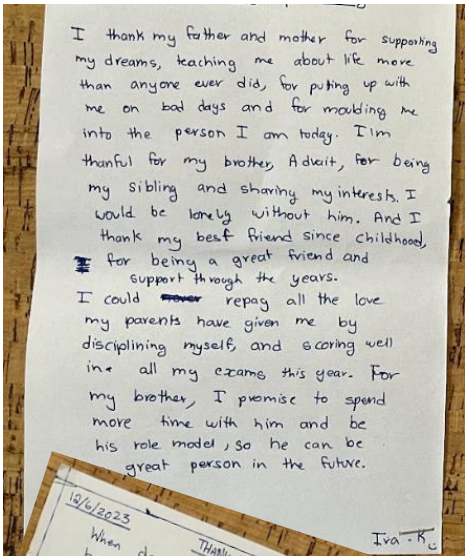 I thank my father and mother for supporting
my dreams, teaching me about life more
than anyone ever did, for puting up with
me on bad days and for moulding me
into the person I am today. I'm
thanful for my brother, Advait, for being
my sibling and sharing my interests. I
would be lonely without him. And I
thank my best friend since childhood,
for being a great friend and
support through the years.
I could repay all the love
my parents have given me by
disciplining myself, and scoring well
in all my exams this year. For
my brother, I promise to spend
more time with him and be
his role model, so he can be
great person in the future.
Ira - K
12/6/2023
THAN
When